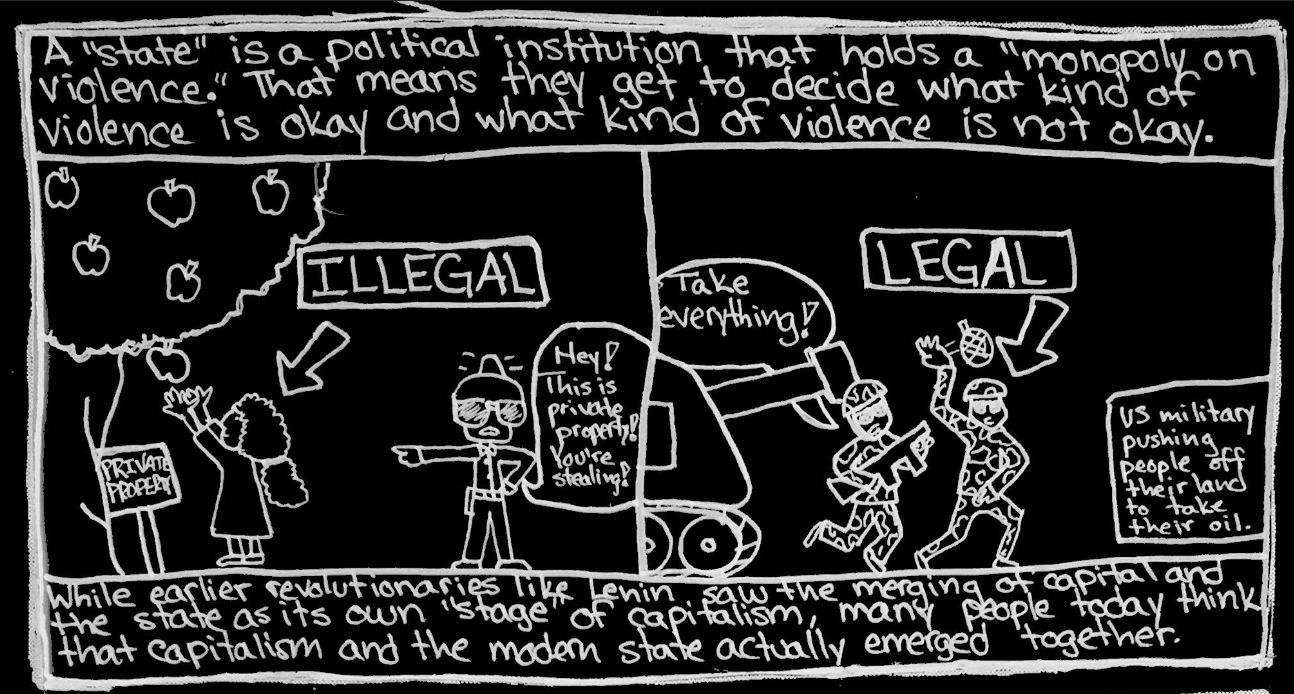 A "state" is a political institution that holds a "monopoly on
violence." That means they get to decide what kind of
violence is okay and what kind of violence is not okay.
ILLEGAL
PRIVATE
PROPERTY
Hey!
This is
private
property!
You're
stealing!
LEGAL
Take
everything!
US military
pushing
people off
their land
to take
their oil.
While earlier revolutionaries like Lenin saw the merging of capital and
the state as its own "stage" of capitalism, many people today think
that capitalism and the modern state actually emerged together.